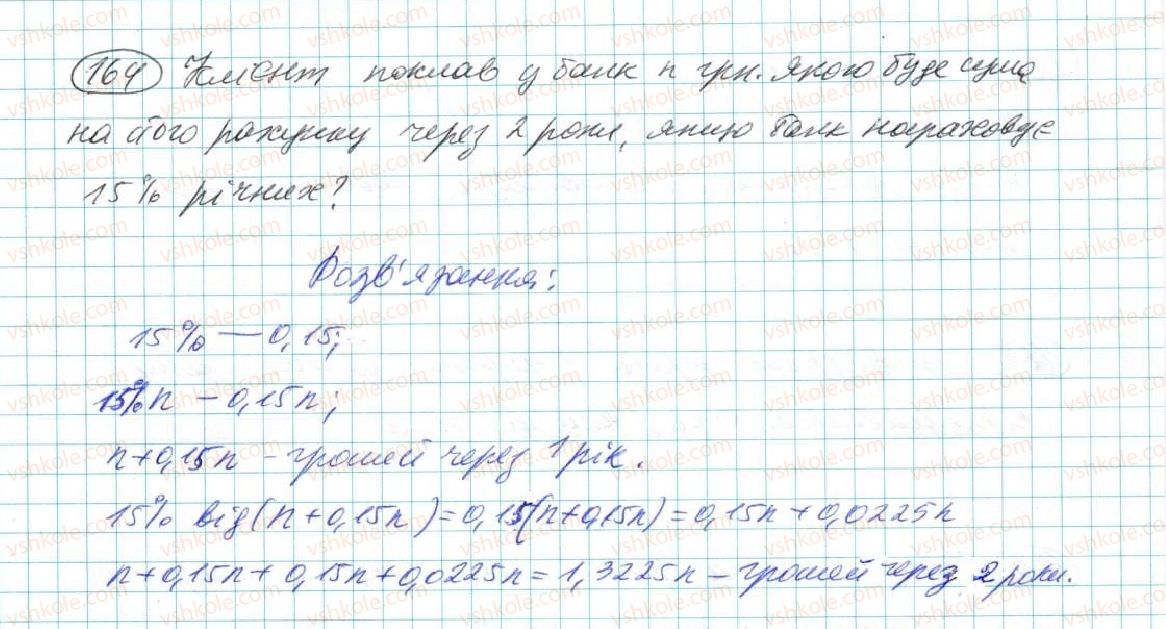 164 Клієнт поклав у банк n грн. Якою буде сума
на його рахунку через 2 роки, якщо банк нараховує
15% річних?
Розв'язання:
15% — 0,15;
15% n – 0,15n;
n+0,15n – грошей через 1 рік.
15% від (n+0,15n) = 0,15(n+0,15n) = 0,15n+0,0225n
n+0,15n+0,15n+0,0225n = 1,3225n – грошей через 2 роки.